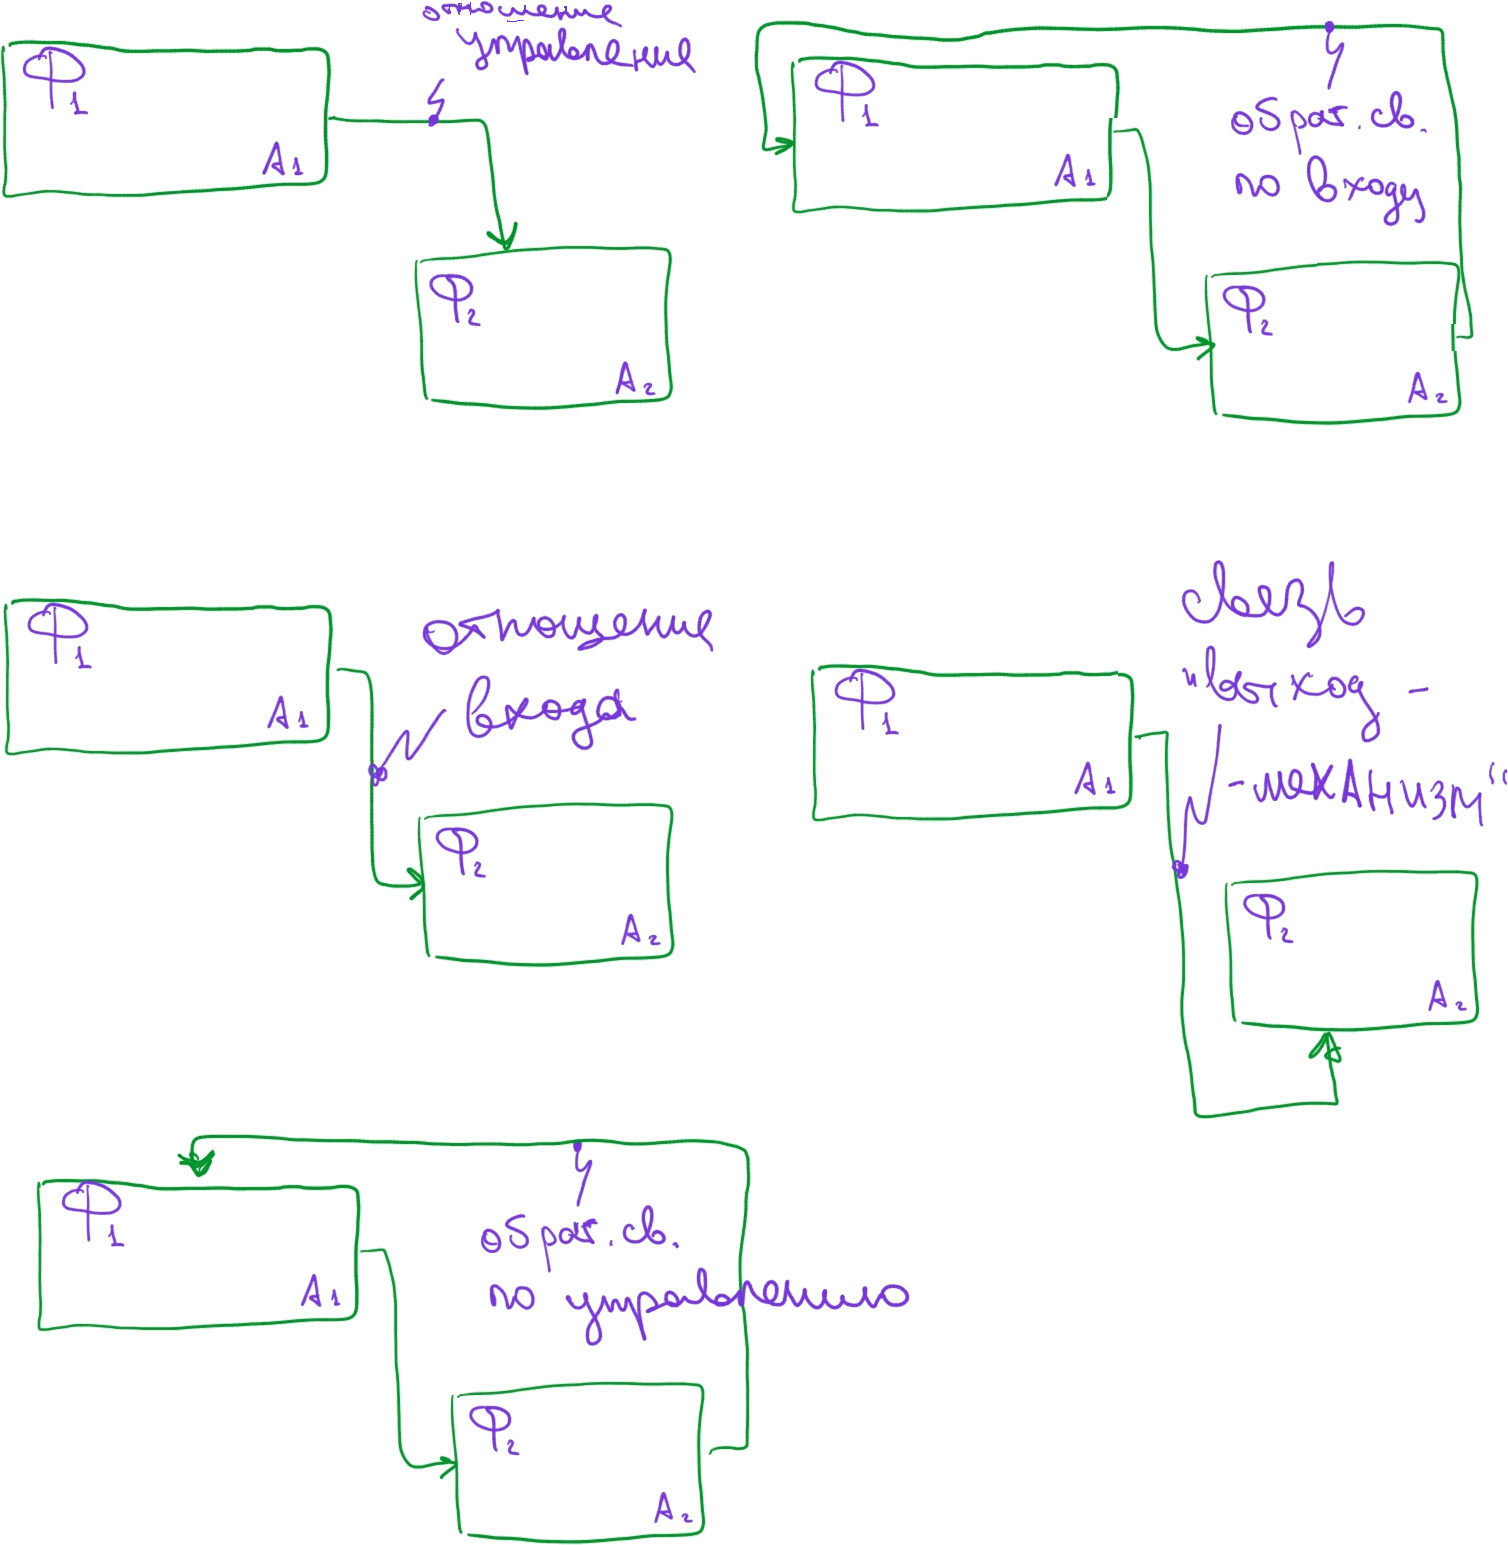 отношение
управление
Ф1
А1
Ф2
А2
Ф1
А1
обрат. св.
по входу
Ф2
А2
Ф1
А1
отношение
входа
Ф2
А2
связь
"выход -
- механизм"
Ф1
А1
Ф2
А2
Ф1
А1
обрат. св.
по управлению
Ф2
А2